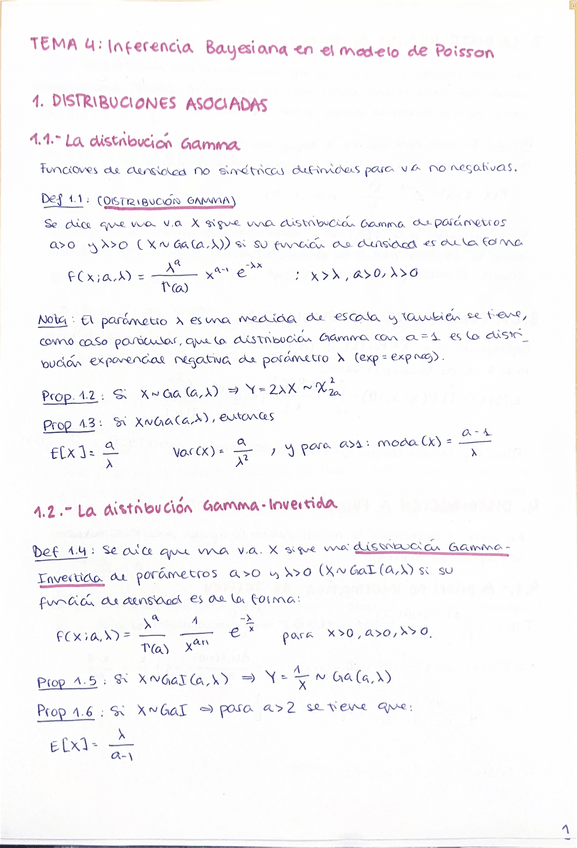 TEMA 4: Inferencia Bayesiana en el modelo de Poisson
1. DISTRIBUCIONES ASOCIADAS
1.1.- La distribución Gamma
Funciones de densidad no simétricas definidas para v.a no negativas.
Def 1.1: (DISTRIBUCIÓN GAMMA)
Se dice que una v.a X sigue una distribución Gamma de parámetros
a>0 y λ>0 (X~Ga(a,λ)) si su función de densidad es de la forma
f(x;a,λ) = λ^a/Γ(a) x^(a-1) e^(-λx) : x>λ, a>0, λ>0
Nota: El parámetro λ es una medida de escala y también se tiene,
como caso particular, que la distribución Gamma con a=1 es la distri-
bución exponencial negativa de parámetro λ (exp = expneg).
Prop. 1.2: Si X~Ga(a,λ) ⇒ Y=2λX ~ χ²_2a
Prop 1.3: Si X~Ga(a,λ), entonces
E[X] = a/λ Var(X) = a/λ² , y para a>1: moda(X) = (a-1)/λ
1.2.- La distribución Gamma-Invertida
Def 1.4: Se dice que una v.a. X sigue una distribución Gamma-
Invertida de parámetros a>0 y λ>0 (X~GaI(a,λ) si su
función de densidad es de la forma:
f(x;a,λ) = λ^a/Γ(a) 1/x^(a+1) e^(-λ/x) para x>0, a>0, λ>0.
Prop 1.5: Si X~GaI(a,λ) ⇒ Y = 1/X ~ Ga(a,λ)
Prop 1.6: Si X~GaI ⇒ para a>2 se tiene que:
E[X] = λ/(a-1)
1